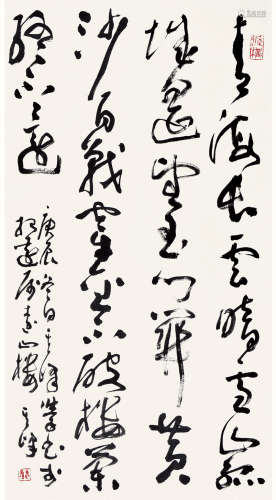 青海長雲暗雪山孤
城遙望玉門關黃
沙百戰穿金甲不破樓蘭
終不還
庚辰冬日